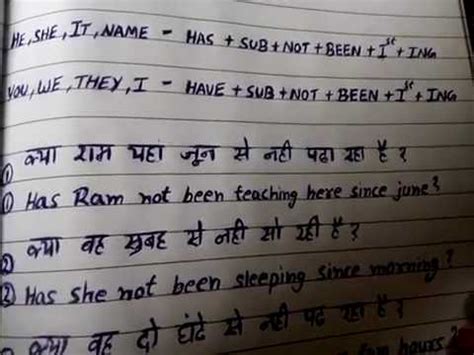 HE, SHE, IT, NAME - HAS + SUB + NOT + BEEN + Ist + ING
YOU, WE, THEY, I - HAVE + SUB + NOT + BEEN + Ist + ING
① क्या राम यहां जून से नही पढा रहा है ?
① Has Ram not been teaching here since june?
② क्या वह सुबह से नही सो रही है ?
② Has she not been sleeping since morning?
क्या वह दो घंटे से नही पढ रहा है ?
hours ?